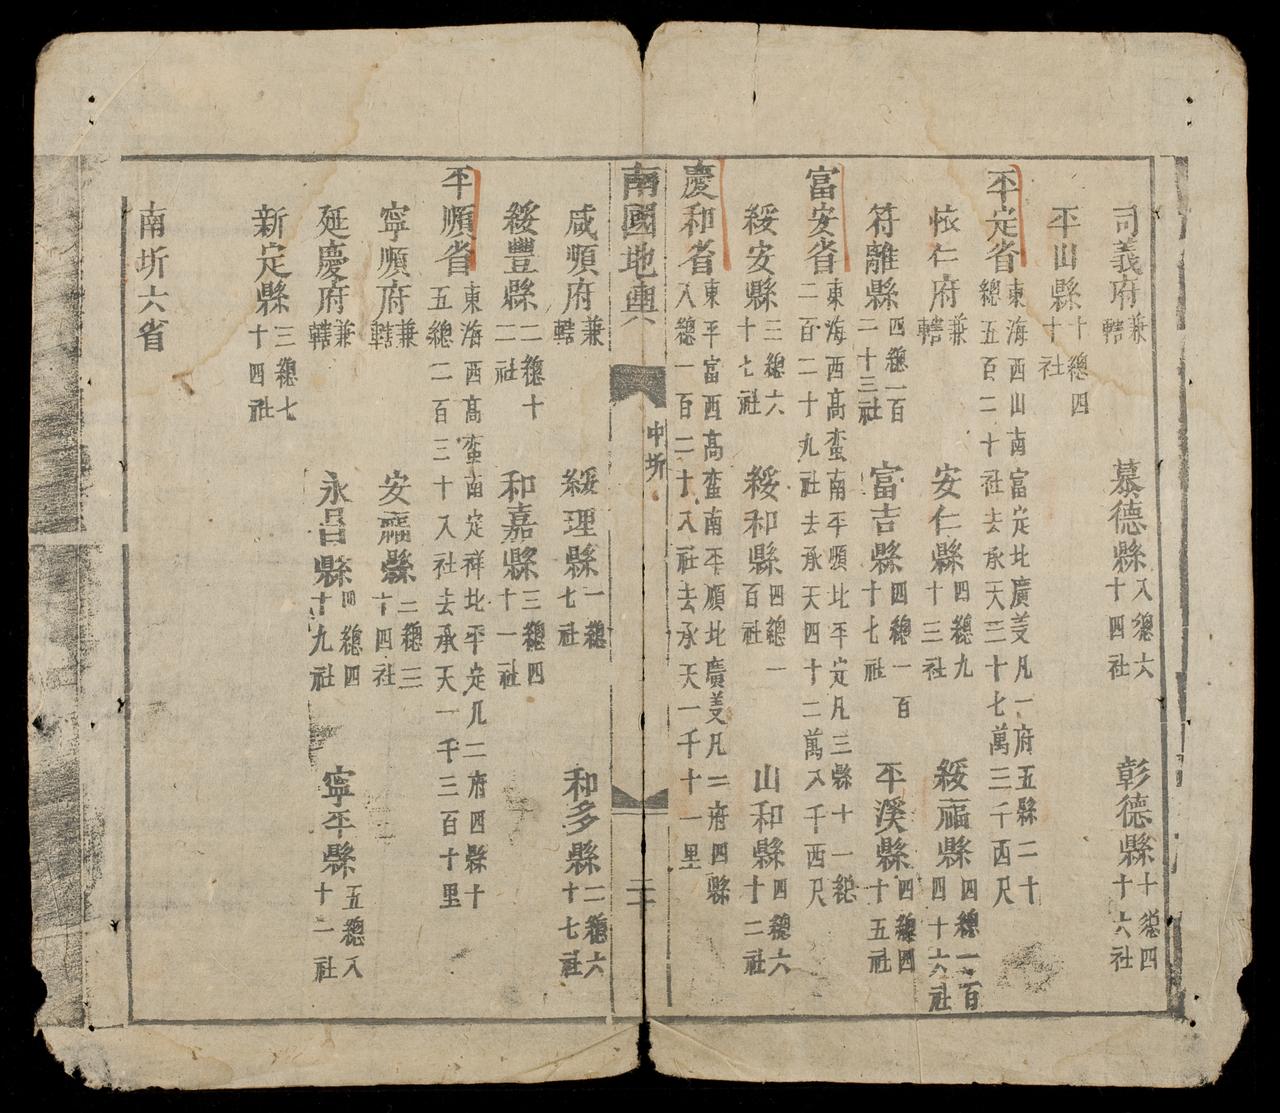 司義府兼轄 慕德縣八總六十四社 彰德縣十總四十六社
平山縣十總四十社
平定省東海西山南富定北廣義凡一府五縣二十總五百二十社去承天三十七萬三千西尺
懷仁府兼轄 安仁縣四總九十三社 綏福縣四總一百四十六社
符離縣四總一百二十三社 富吉縣四總一百十七社 平溪縣四總四十五社
富安省東海西高蛮南平順北平定凡三縣十一總二百二十九社去承天四十二萬八千西尺
綏安縣三總六十七社 綏和縣四總一百社 山和縣四總六十二社
慶和省東平富西高蛮南平順北廣義凡二府四縣八總一百二十八社去承天一千十一里
南國地輿 中圻 二十
咸順府兼轄 綏理縣一總七社 和多縣二總六十七社
綏豐縣二總十二社 和嘉縣三總四十一社
平順省東海西高蛮南定祥北平定凡二府四縣十五總二百三十八社去承天一千三百十里
寧順府兼轄 安福縣二總三十四社
延慶府兼轄 永昌縣四總四十九社 寧平縣五總八十二社
新定縣三總七十四社
南圻六省